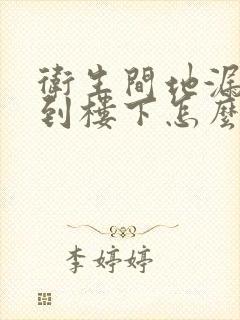 衛生間地漏
到樓下怎麼
李婷婷